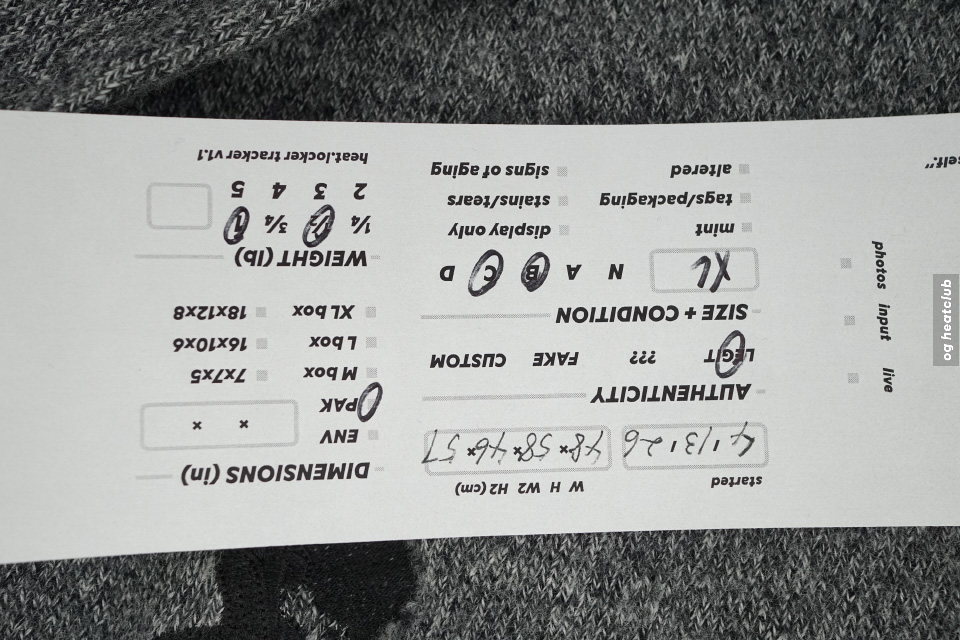 started
4/3/26
W H W2 H2 (cm)
48 x 58 x 46 x 57
AUTHENTICITY
LEGIT ??? FAKE CUSTOM
SIZE + CONDITION
XL
N A B C D
mint
display only
tags/packaging
stains/tears
altered
signs of aging
DIMENSIONS (in)
ENV
x x
PAK
M box 7x7x5
L box 16x10x6
XL box 18x12x8
WEIGHT (lb)
¼ ½ ¾ 1
2 3 4 5
heat.locker tracker v1.1
live
input
photos
self."
og heatclub